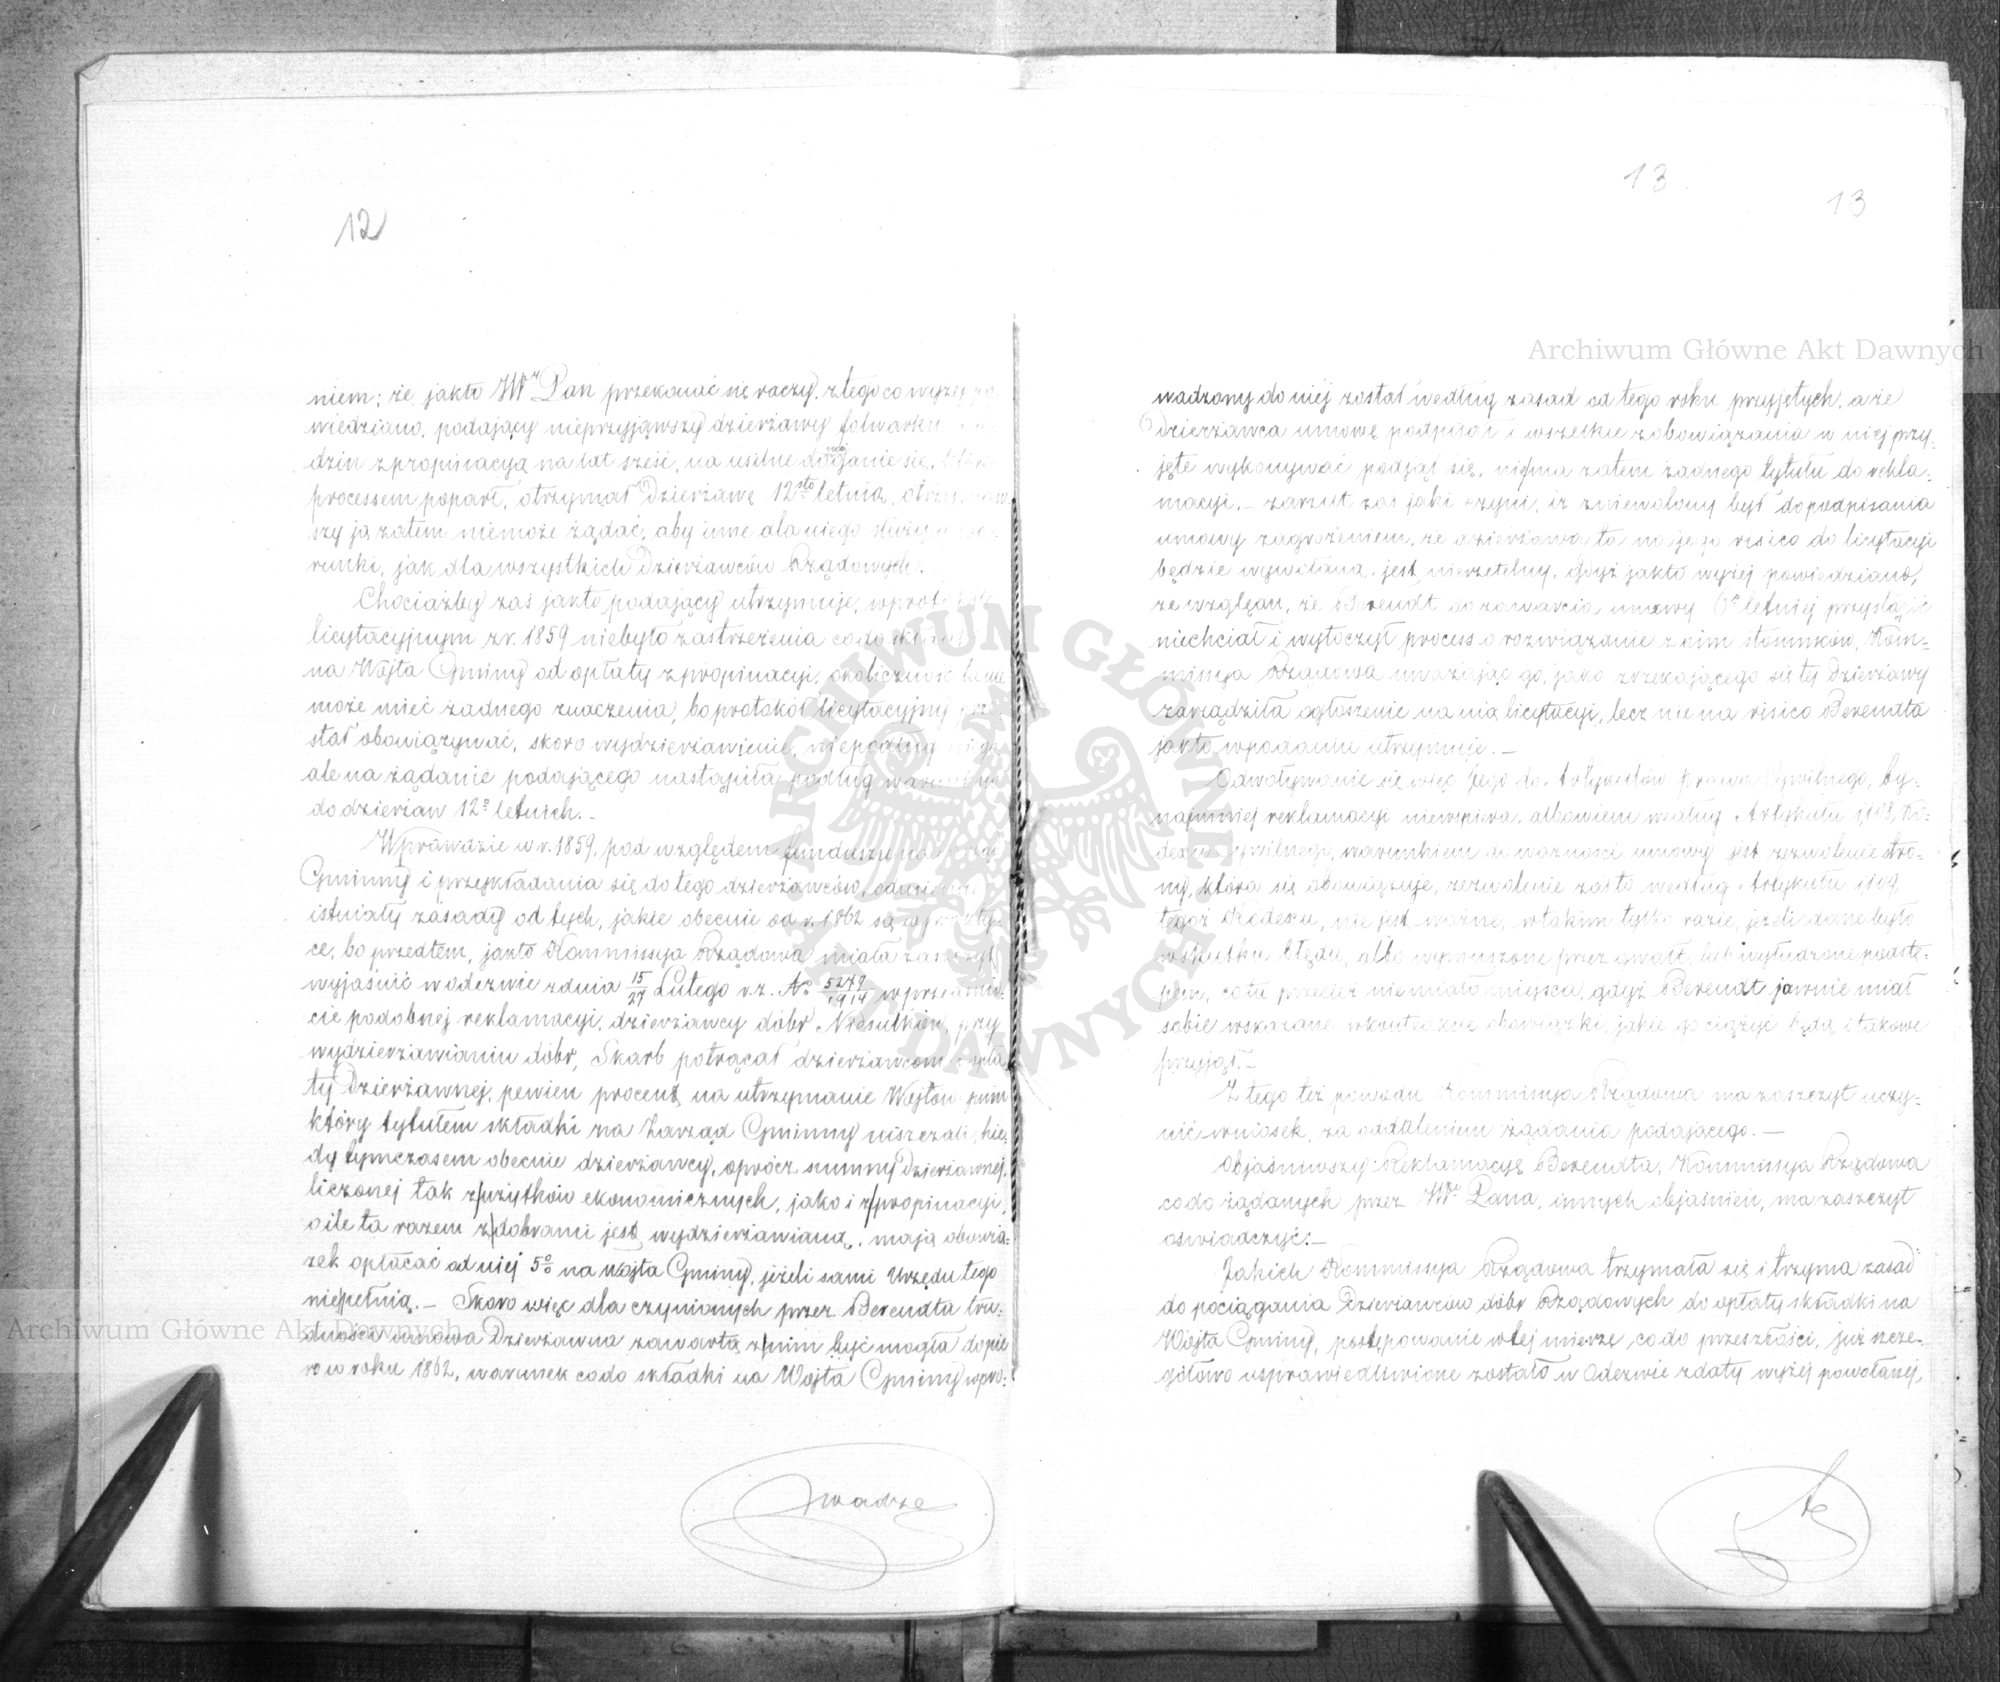 12
niem; że jakto JW Pan przekonać się raczy, z tego co wyżej po-
wiedziano, podający nieprzyjąwszy dzierżawy folwarku
dzin z propinacyą na lat sześć, na usilne domaganie się,
processem poparte, otrzymał Dzierżawę 12sto letnią, otrzymaw
szy ją zatem niemoże żądać, aby inne dla niego służyły wa-
runki, jak dla wszystkich Dzierżawców Rządowych.
Chociażby zaś jakto podający utrzymuje, w protokóle
licytacyjnym z r. 1859 niebyło zastrzeżenia co do składki
na Wójta Gminy od opłaty z propinacyi, okoliczność ta nie
może mieć żadnego znaczenia, bo protokół licytacyjny prze-
stał obowiązywać, skoro wydzierżawienie, niepodług niego
ale na żądanie podającego nastąpiło podług warunków
do dzierżaw 12o letnich._
Wprawdzie w r. 1859, pod względem funduszu na
Gminny i przykładania się do tego dzierżawców,
istniały zasady od tych, jakie obecnie od r. 1862 są w prakty-
ce, bo przedtem, jakto Kommissya Rządowa miała zaszczyt
wyjaśnić w odezwie z dnia 15/27 Lutego r.z. No 5279/1914 w przedmio-
cie podobnej reklamacyi, dzierżawcy dóbr Niesułków, przy
wydzierżawianiu dóbr, Skarb potrącał dzierżawcom z opła
ty Dzierżawnej, pewien procent na utrzymanie Wójtów gmin
który tytułem składki na Zarząd Gminny uiszczali, kie-
dy tymczasem obecnie dzierżawcy, oprócz summy Dzierżawnej,
liczonej tak z użytków ekonomicznych, jako i z propinacyi,
o ile ta razem z dobrami jest wydzierżawianą, mają obowią-
zek opłacać od niej 5% na Wójta Gminy, jeżeli sami Urzędu tego
niepełnią._ Skoro więc dla czynionych przez Berendta tru-
dności umowa Dzierżawna zawartą z nim być mogła dopie
ro w roku 1862, warunek co do składki na Wójta Gminy wpro-
13
13
wadzony do niej został według zasad od tego roku przyjętych, a że
Dzierżawca umowę podpisał i wszelkie zobowiązania w niej przy-
jęte wykonywać podjął się, niema zatem żadnego tytułu do rekla-
macyi._ zarzut zaś jaki czyni, iż zniewolony był do podpisania
umowy zagrożeniem, że dzierżawa ta na jego risico do licytacyi
będzie wywołana, jest nierzetelny, gdyż jakto wyżej powiedziano,
ze względu, że Berendt do zawarcia umowy 6o letniej przystąpić
niechciał i wytoczył process o rozwiązanie z nim stosunków, Kom-
missya Rządowa uważając go, jako zrzekającego się tej Dzierżawy
zarządziła ogłoszenie na nią licytacyi, lecz nie na risico Berendta
jakto w podaniu utrzymuje._
Odwoływanie się więc Jego do Artykułów Prawa Cywilnego, by-
najmniej reklamacyi niewspiera, albowiem według Artykułu 1108, Ko-
dexu Cywilnego, warunkiem do ważności umowy jest zezwolenie stro-
ny, która się obowiązuje, zezwolenie zaś to według Artykułu 1109
tegoż Kodexu, nie jest ważne, w takim tylko razie, jeżeli dane było
w skutku błędu, albo wymuszone przez gwałt, lub wyłudzone podstę-
pem, co tu przecież niemiało miejsca, gdyż Berendt jawnie miał
sobie wskazane w kontrakcie obowiązki, jakie go ciążyć będą i takowe
przyjął._
Z tego też powodu Kommissya Rządowa ma zaszczyt uczy-
nić wniosek, za oddaleniem żądania podającego._
Objaśniwszy Reklamacyę Berendta, Kommissya Rządowa
co do żądanych przez JW Pana, innych objaśnień, ma zaszczyt
oświadczyć:_
Jakich Kommissya Rządowa trzymała się i trzyma zasad
do pociągania Dzierżawców dóbr Rządowych do opłaty składki na
Wójta Gminy, postępowanie w tej mierze, co do przeszłości, już szcze-
gółowo usprawiedliwione zostało w Odezwie z daty wyżej powołanej,
Archiwum Główne Akt Dawnych
Archiwum Główne Akt Dawnych
ARCHIWUM GŁÓWNE AKT DAWNYCH